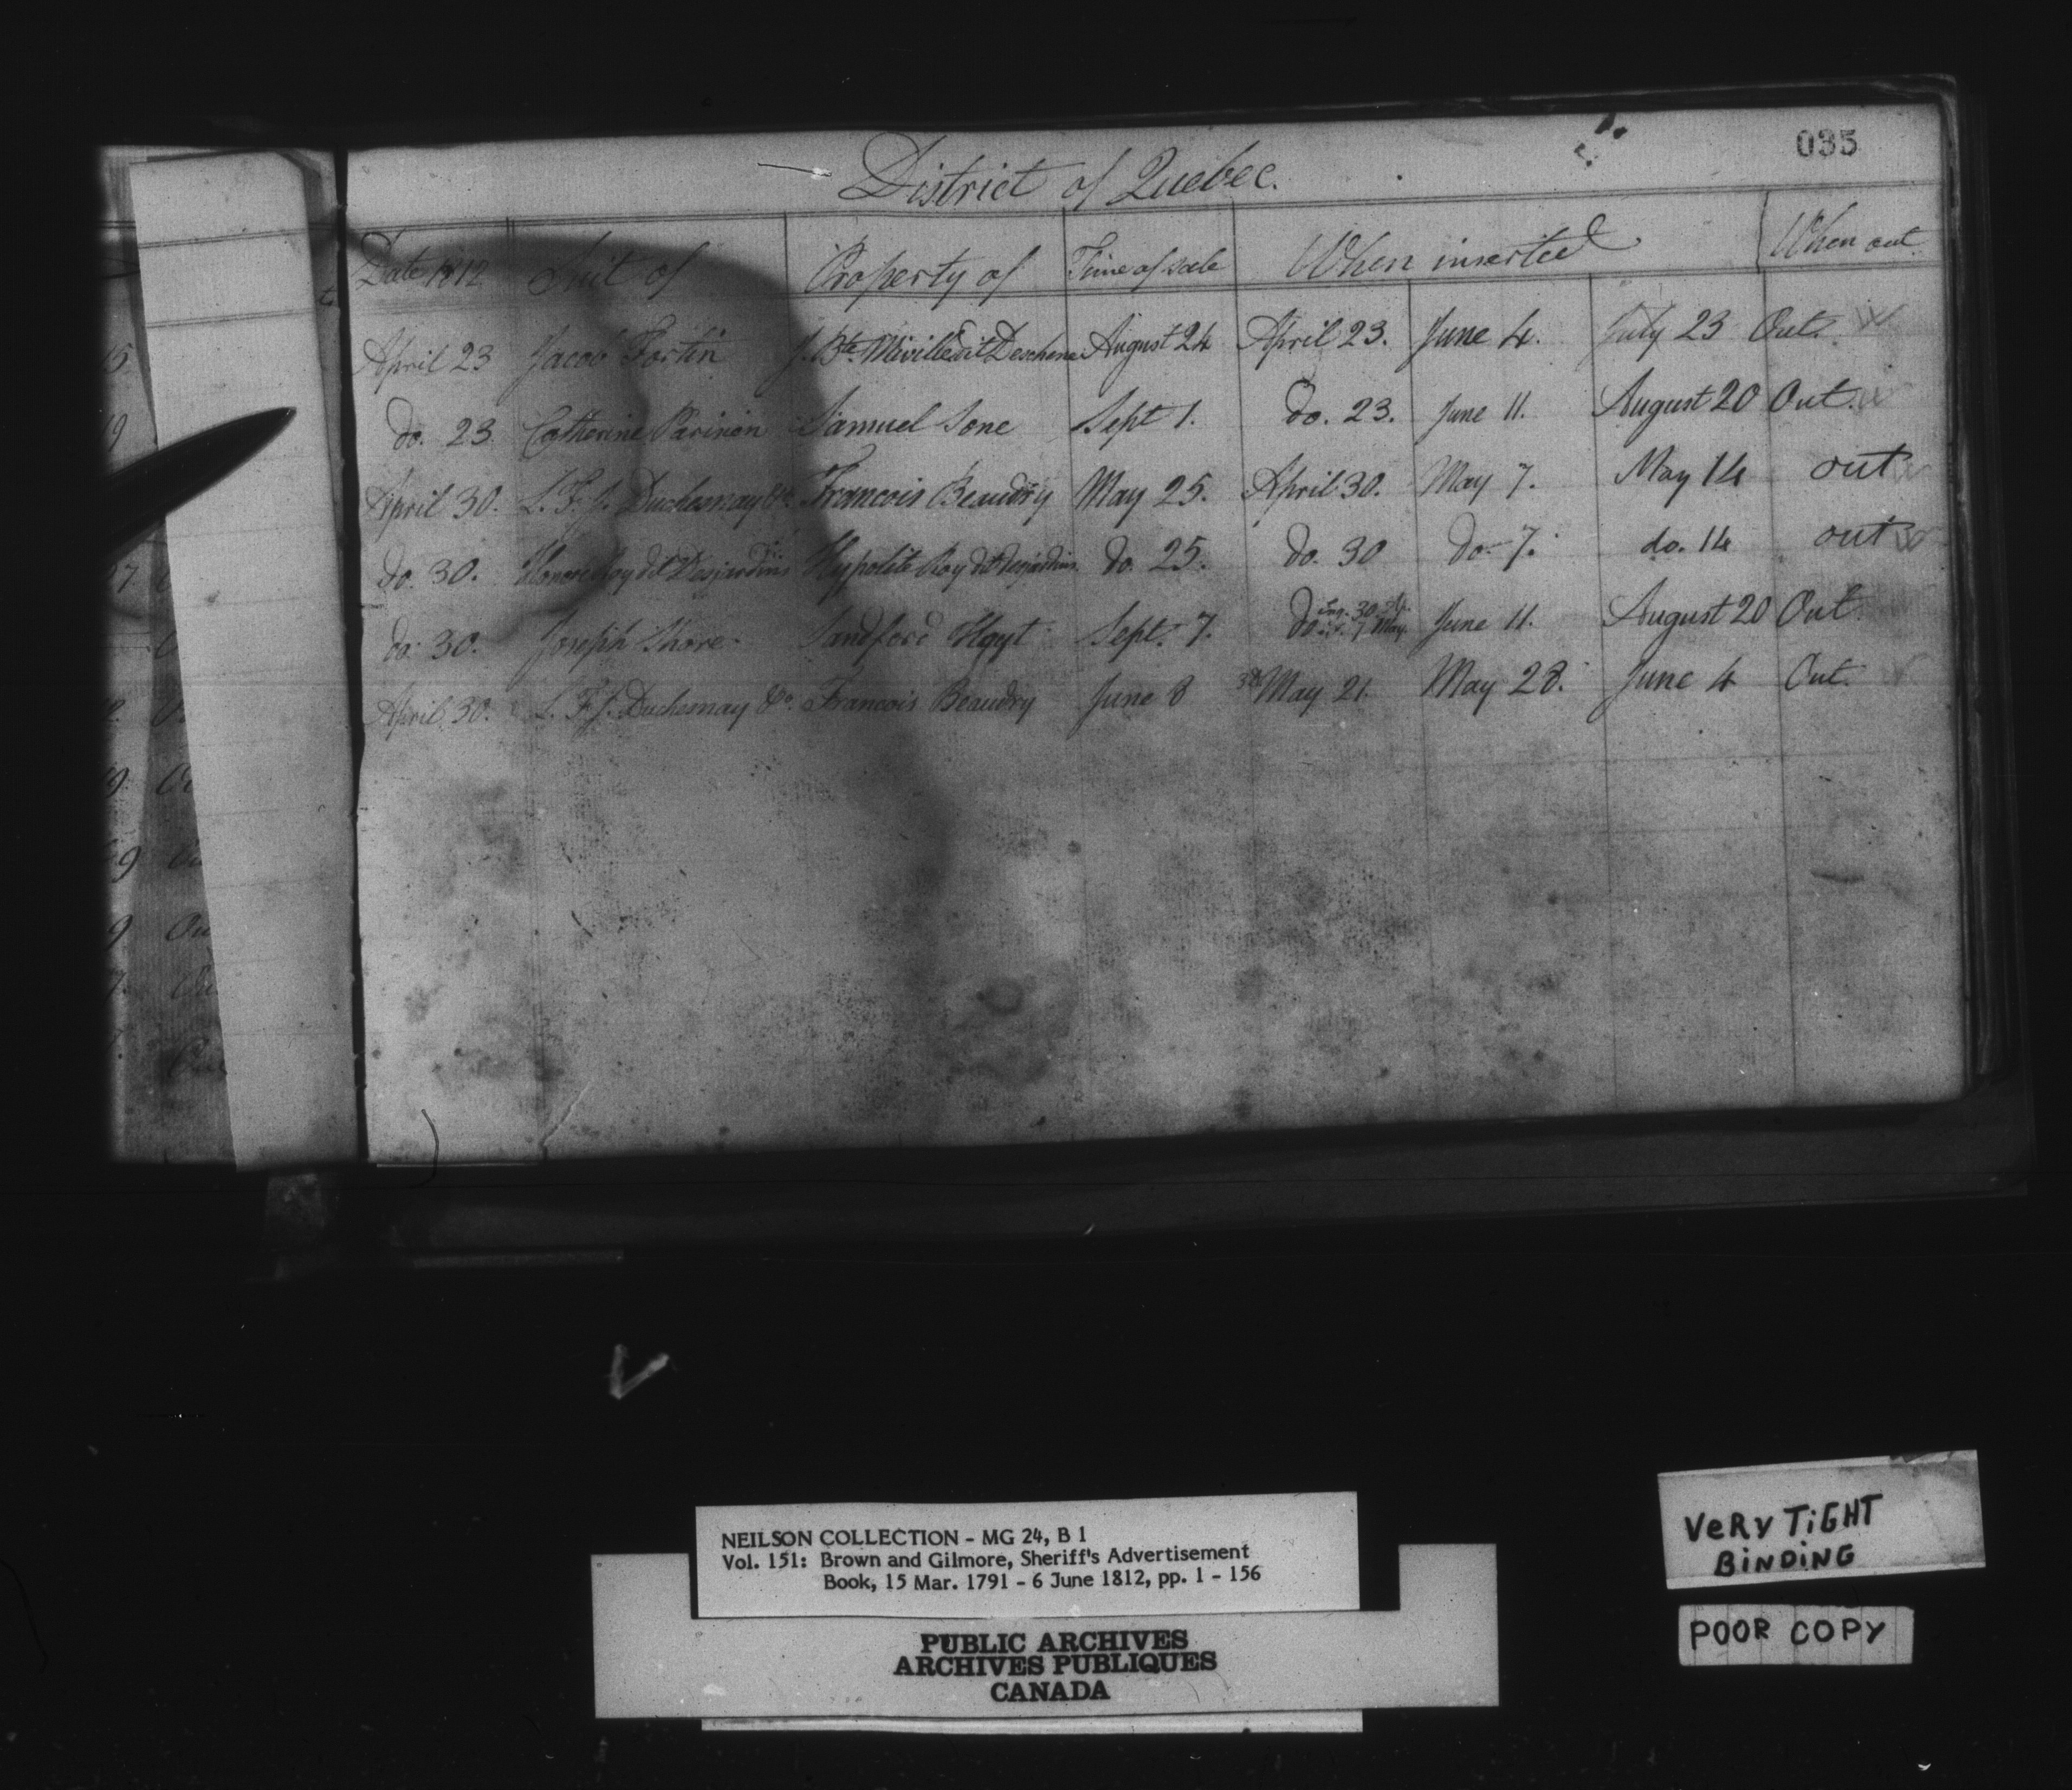 035
District of Quebec.
Date 1812 Suit of Property of Time of sale When inserted When out
April 23 Jacob Fortin J. Bte. Miville dit Deschene August 24 April 23. June 4. July 23 Out.
do. 23 Catherine Samuel Sept 1. do. 23. June 11. August 20 Out.
April 30. L. F. J. Duchesnay &c. Francois Beaudry May 25. April 30. May 7. May 14 out
do. 30. Honore Roy dit Desjardins Hypolite Roy dit Desjardins do. 25. do. 30 do. 7. do. 14 out
do. 30. Joseph Shore. Sandford Hoyt Sept. 7. do 30 7 May. June 11. August 20 Out.
April 30. L. F. J. Duchesnay &c. Francois Beaudry June 8 May 21. May 28. June 4 Out.
NEILSON COLLECTION - MG 24, B 1
Vol. 151: Brown and Gilmore, Sheriff's Advertisement
Book, 15 Mar. 1791 - 6 June 1812, pp. 1 - 156
PUBLIC ARCHIVES
ARCHIVES PUBLIQUES
CANADA
VeRy TiGHT
BiNDiNG
POOR COPY